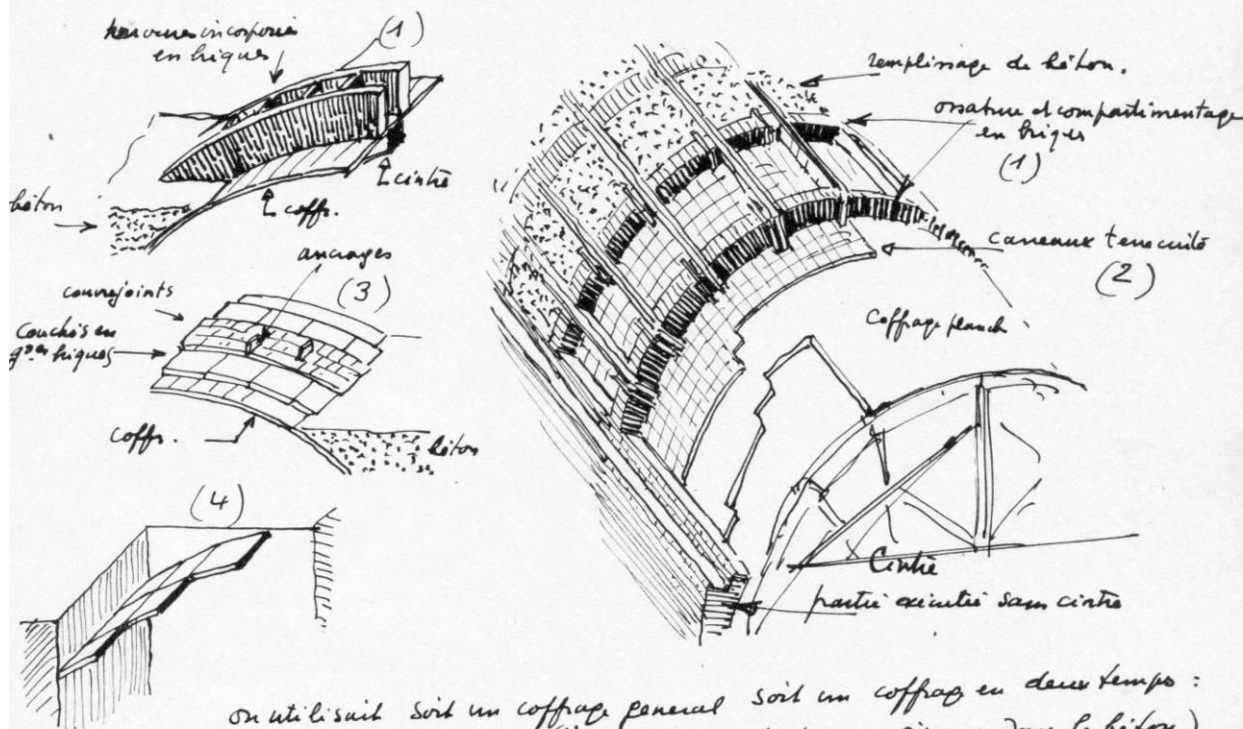 nervures incorporées
en briques
(1)
béton
coffr.
cintre
ancrages
(3)
couvrejoints
couchés en
gdes briques
coffr.
béton
(4)
remplissage de béton.
ossature et compartimentage
en briques
(1)
carreaux terre cuite
(2)
Coffrage planch
Cintre
partie exécutée sans cintre
on utilisait soit un coffrage general soit un coffrag en deux temps :
dans le béton)